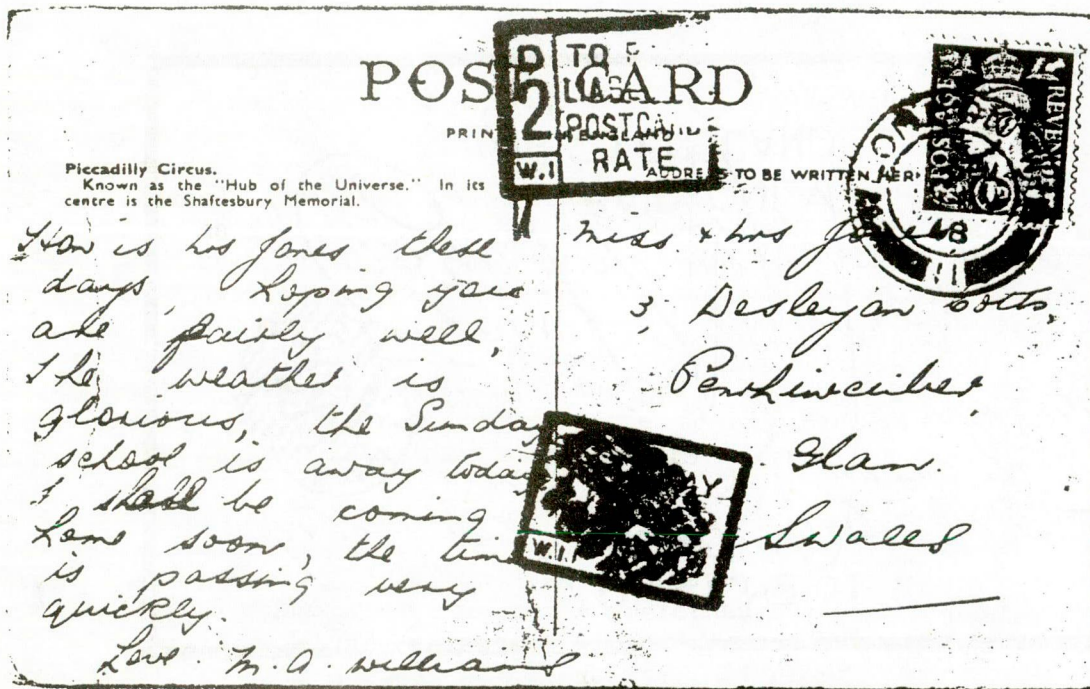 POST CARD
PRINTED IN ENGLAND
D
2
W.1
TO
POSTCARD
RATE
ADDRESS TO BE WRITTEN HERE
POSTAGE
REVENUE
48
11
Piccadilly Circus.
Known as the "Hub of the Universe." In its
centre is the Shaftesbury Memorial.
How is Mrs Jones these
days, hoping you
are fairly well,
The weather is
glorious, the Sunday
school is away today
I shall be coming
home soon, the time
is passing very
quickly.
Love M. A. Williams
Miss & Mrs Jones
3, Wesleyan Cotts,
Penrhiwceiber,
Glam.
S Wales
W.1
Y